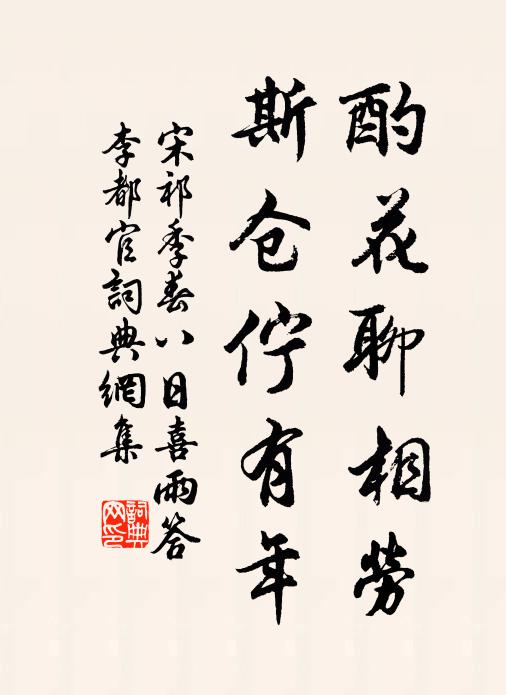 酌花聊相劳
斯仓佇有年
宋祁季春八日喜雨答
李都官詞典網集
詞典网印